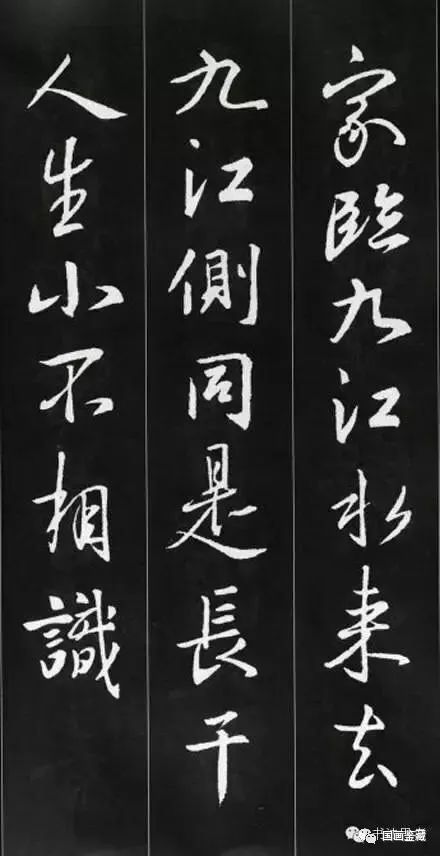 家臨九江水来去
九江側同是長干
人生小不相識
国画鉴藏